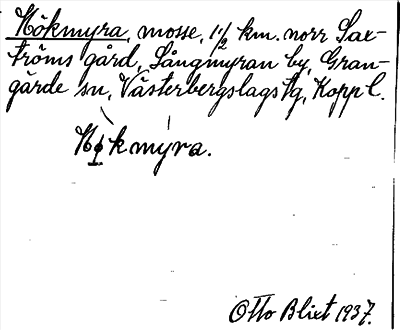 Hökmyra, mosse, 1 1/2 km. norr Sax-
tröms gård, Sångmyran by, Gran-
gärde sn, Västerbergslags tg, Koppl.
Hökmyra.
Otto Blixt 1937.